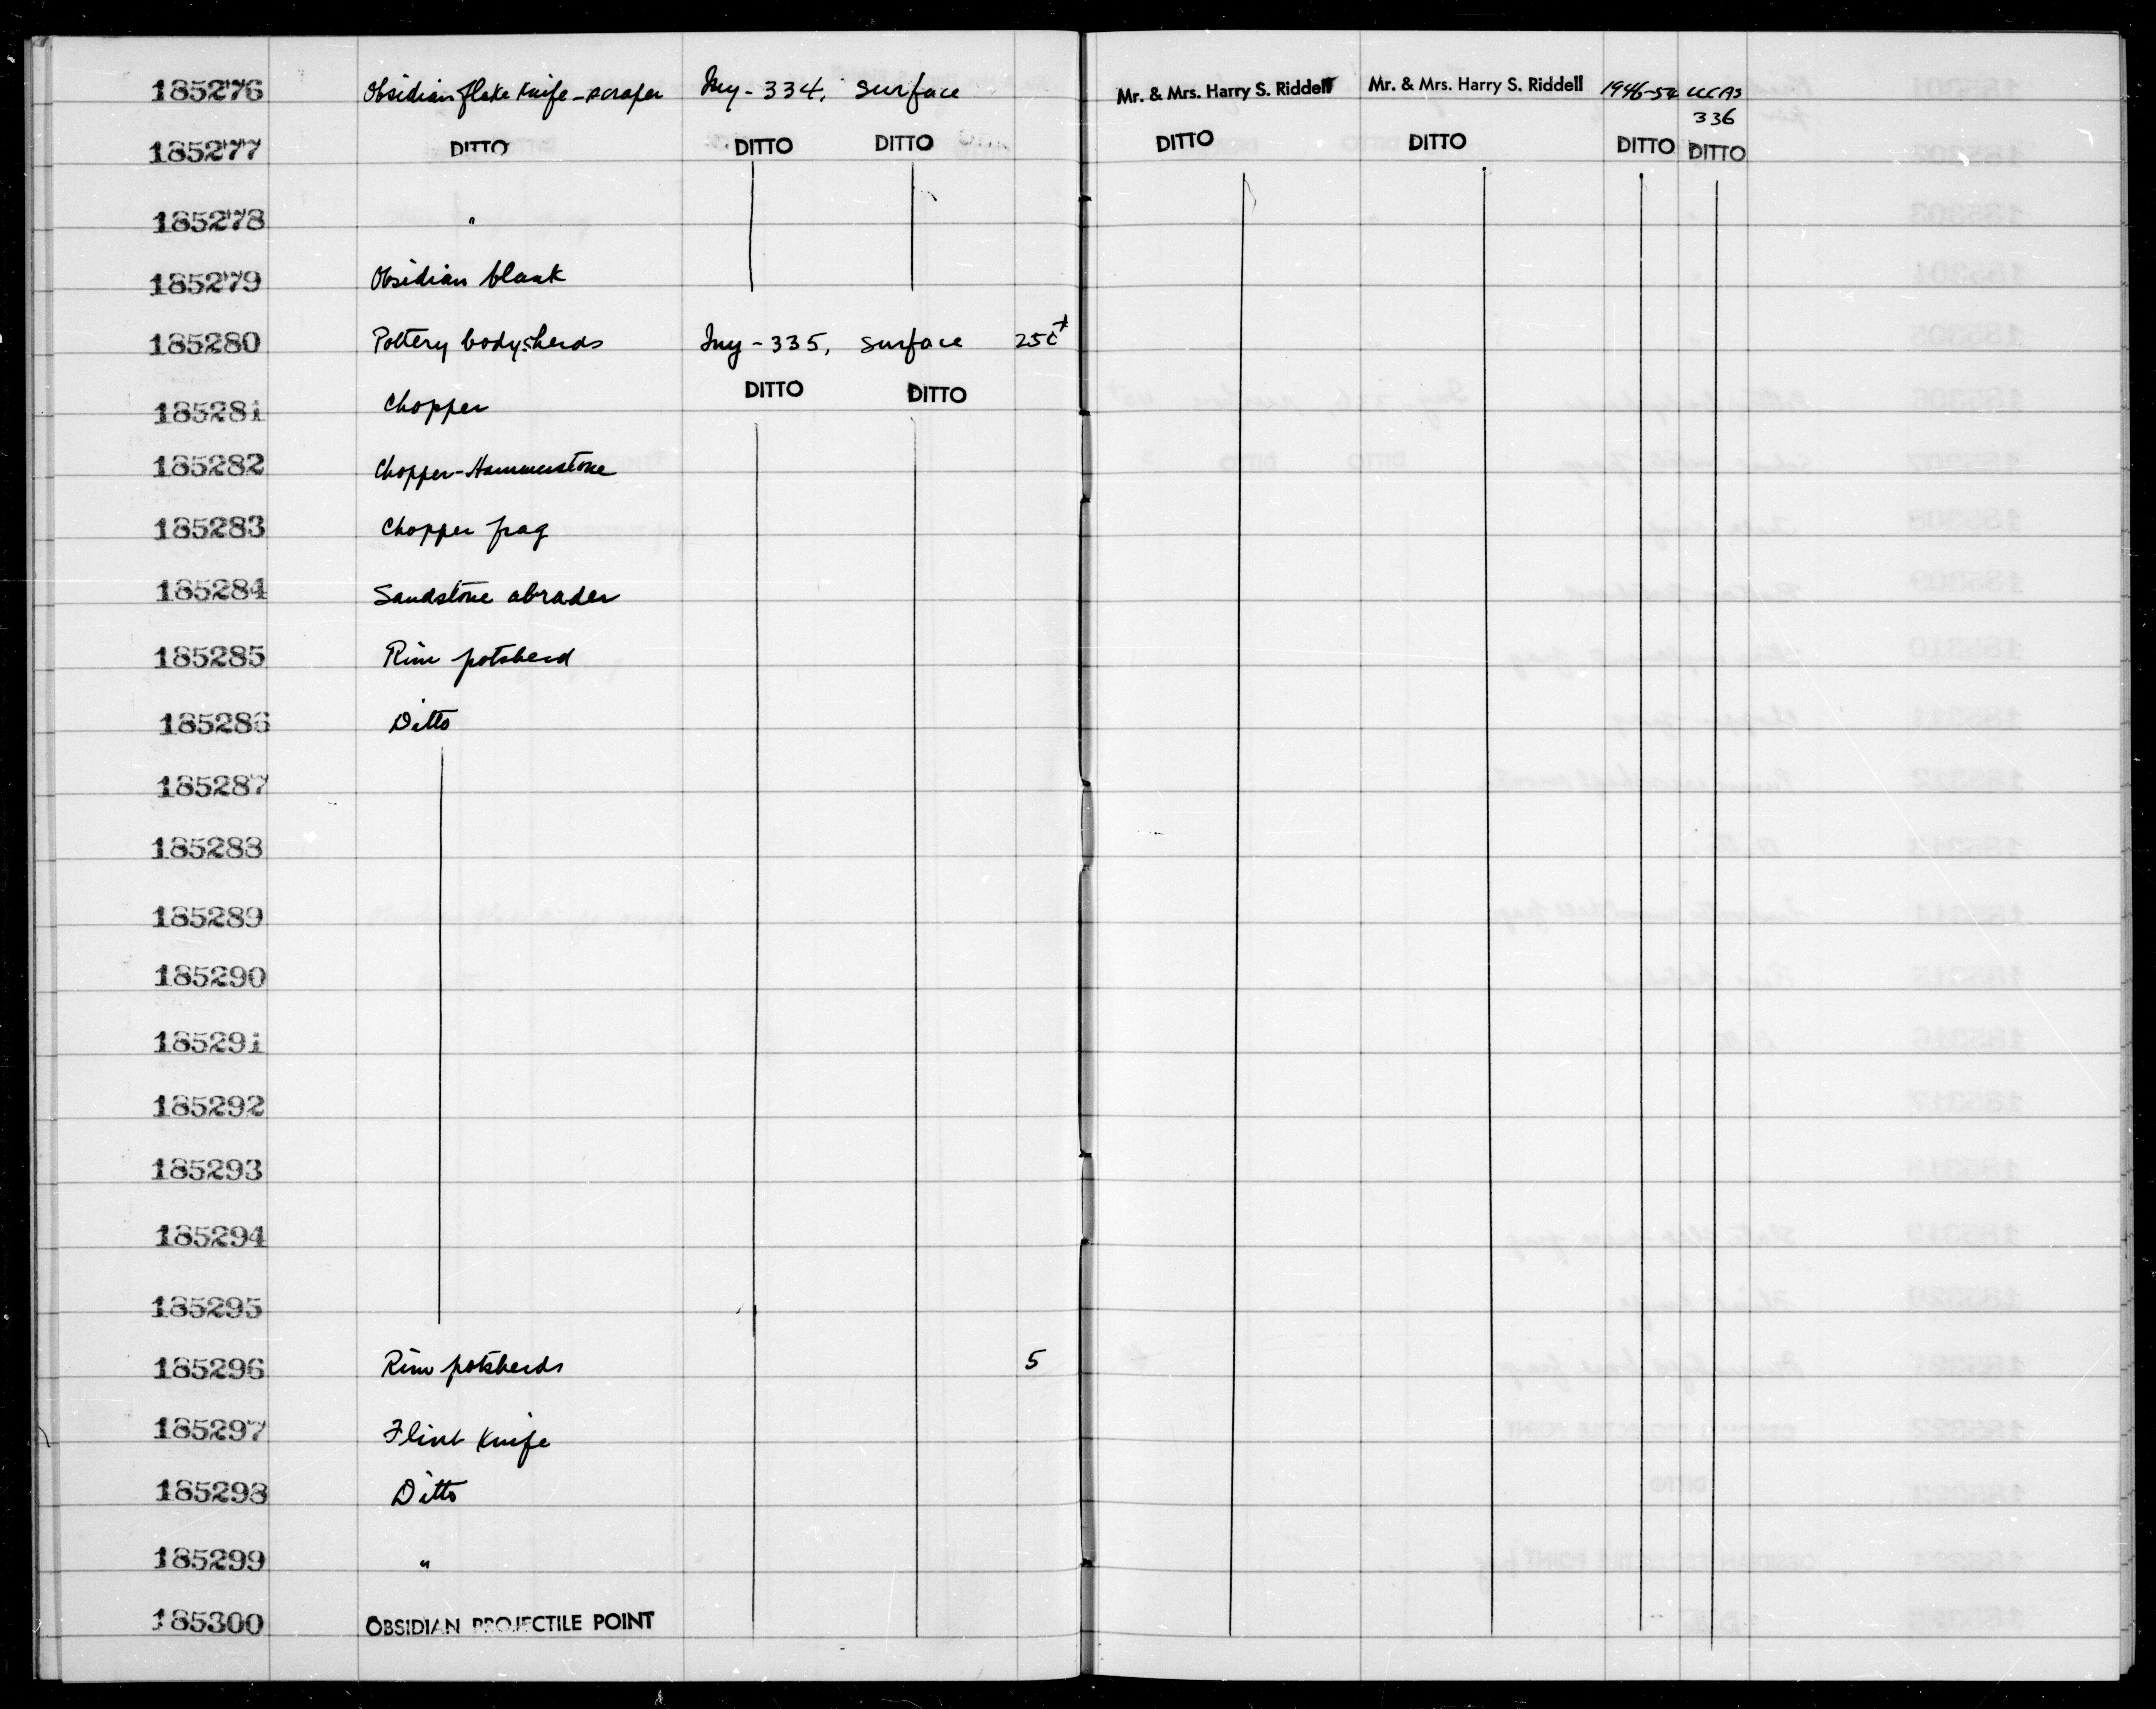 185276 Obsidian flake knife-scraper Iny-334, surface Mr. & Mrs. Harry S. Riddell Mr. & Mrs. Harry S. Riddell 1946-54 UCAS
336
185277 DITTO DITTO DITTO DITTO DITTO DITTO DITTO
185278 "
185279 Obsidian blank
185280 Pottery body sherds Iny-335, surface
185281 Chopper DITTO DITTO
185282 Chopper-Hammerstone
185283 Chopper frag
185284 Sandstone abrader
185285 Rim potsherd
185286 Ditto
185287
185288
185289
185290
185291
185292
185293
185294
185295
185296 Rim potsherds 5
185297 Flint Knife
185298 Ditto
185299 "
185300 OBSIDIAN PROJECTILE POINT